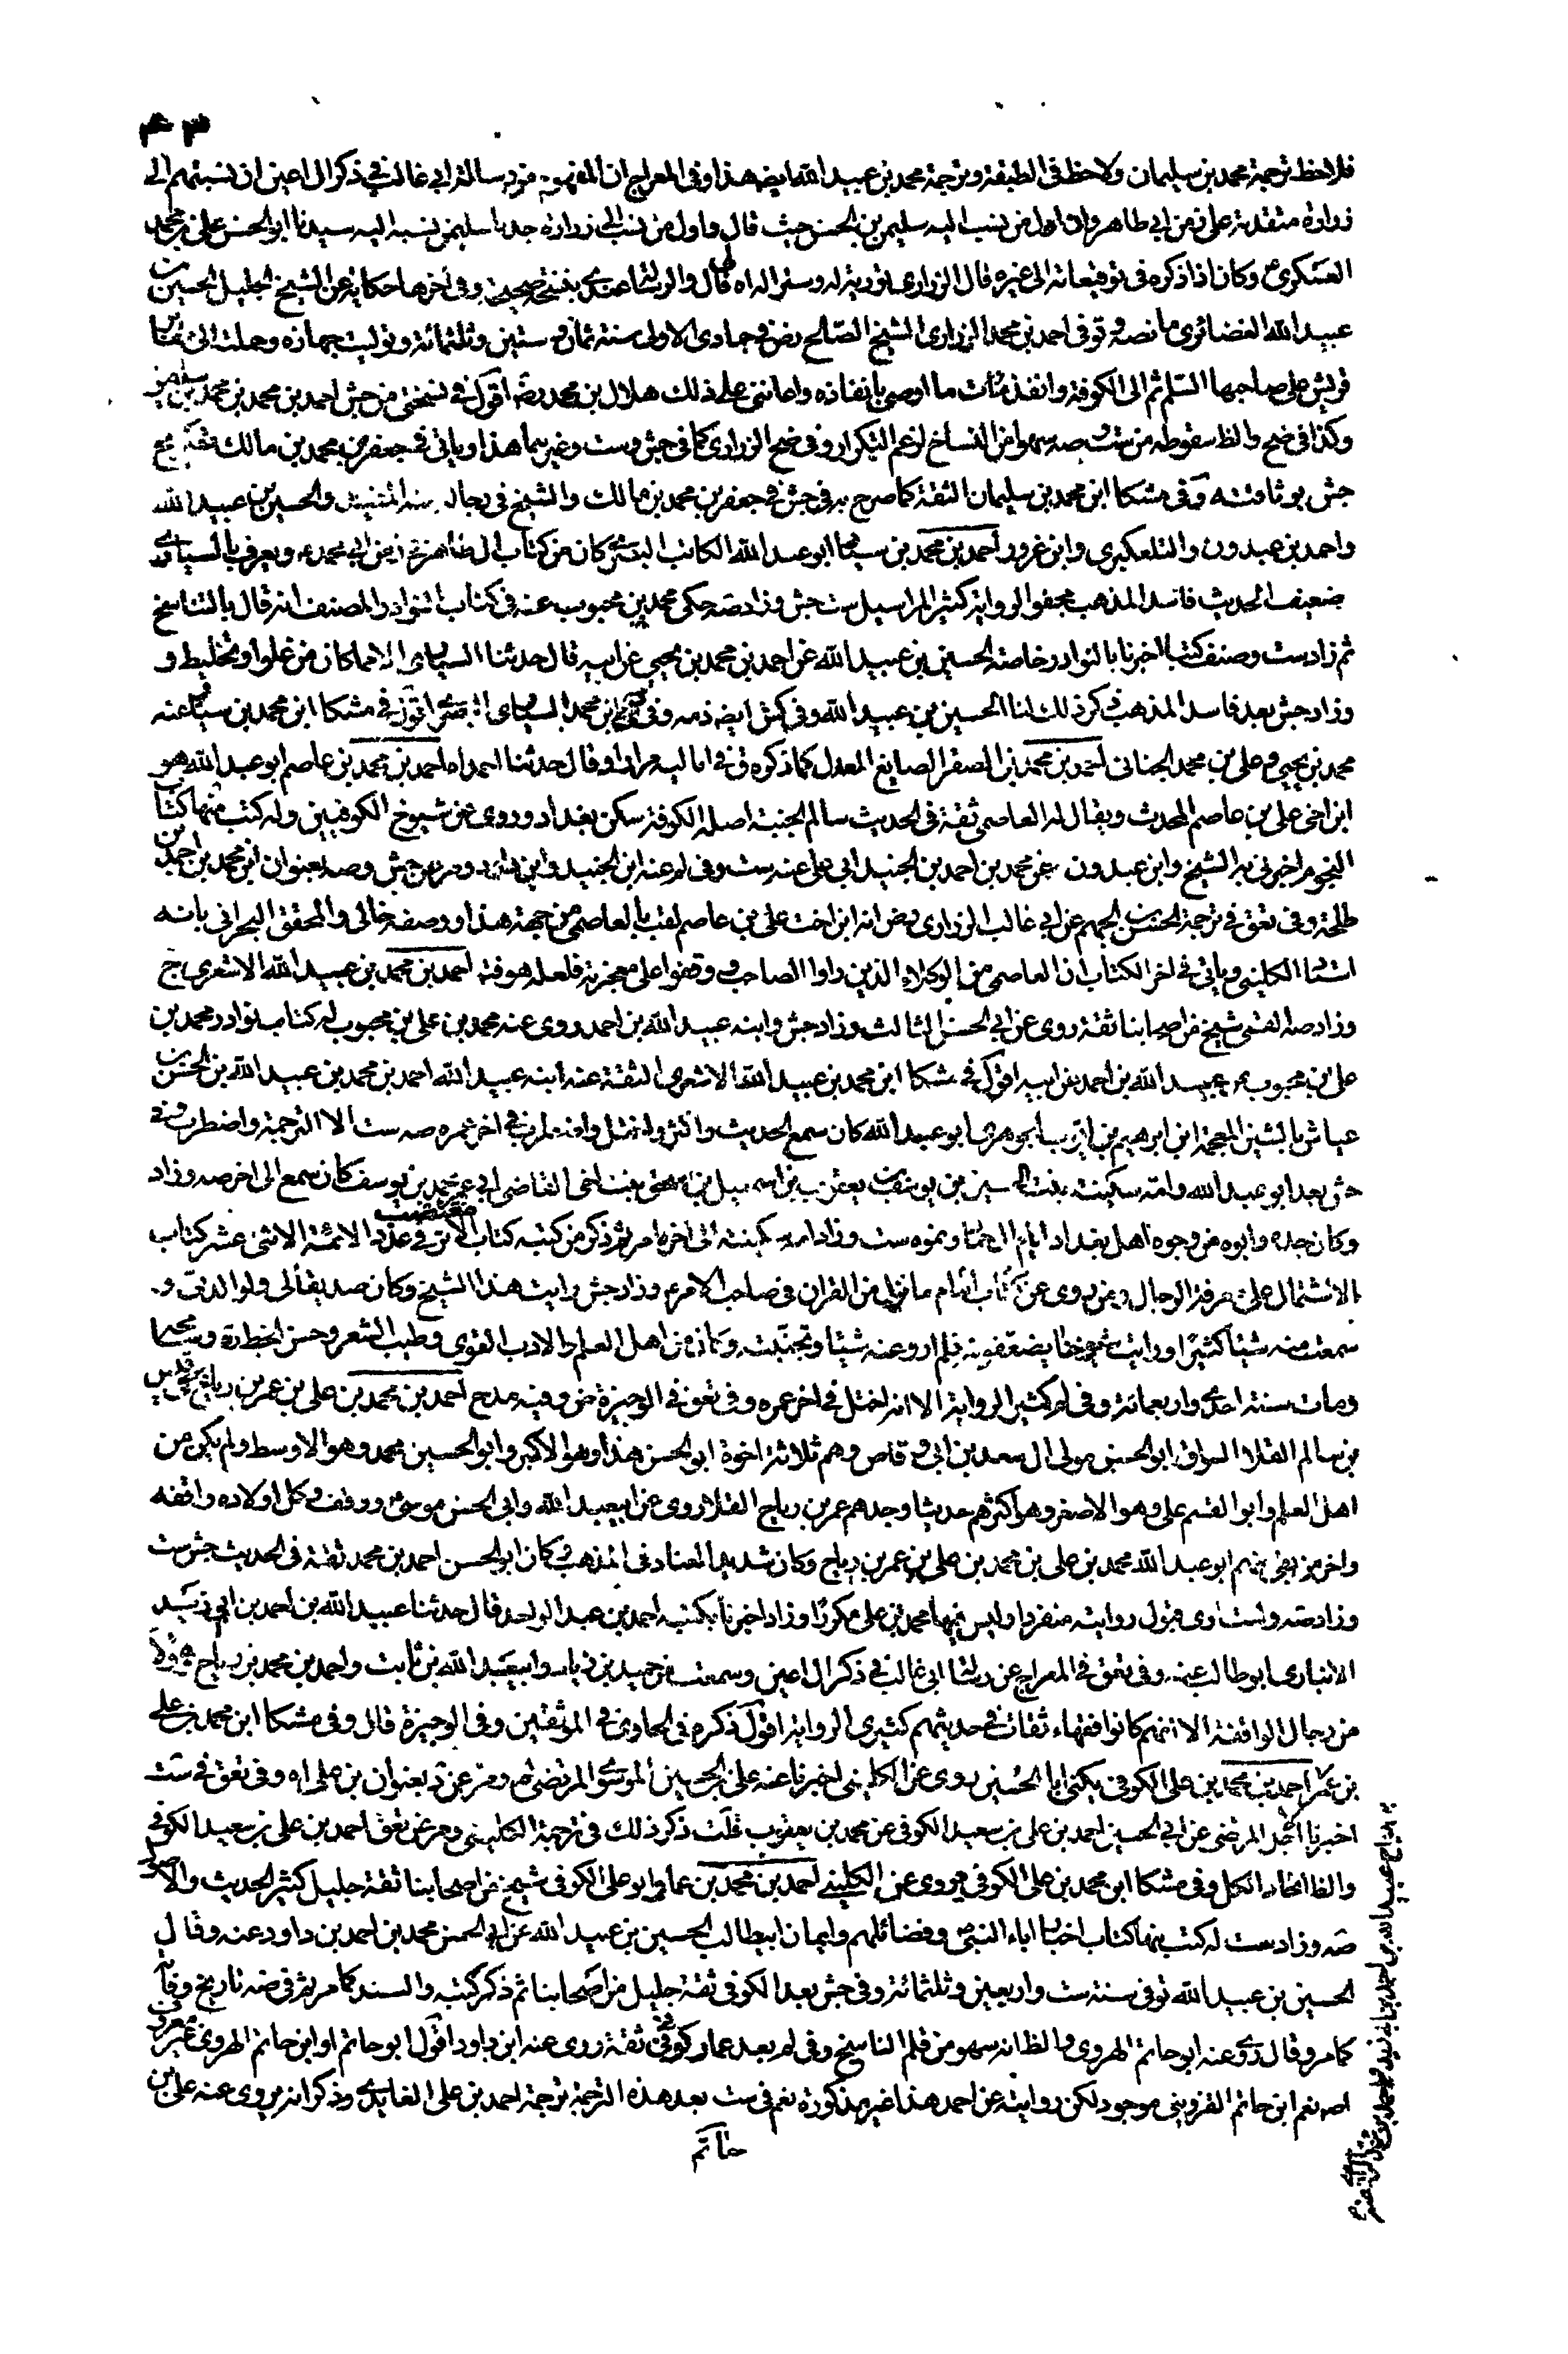 ٤٣
فلاحظ ترجمة محمد بن سليمان ولاحظ في الطبقة وترجمة محمد بن عبيد الله ايضا هذا وفي المعراج ان المفهوم من رسالة ابي غالب في ذكر ال اعين ان نسبتهم الى
زرارة متقدمة على زمن ابي طاهر وان اول من نسب اليه سليمن بن الحسن حيث قال واول من نسب الى زرارة جدنا سليمن نسبه اليه سيدنا ابو الحسن علي بن محمد
العسكري ع وكان اذا ذكره في توقيعاته الى غيره قال الزراري تورية له وسترا له اه قال والرسالة عندي بنسخة صحيحة وفي آخرها حكاية عن الشيخ الجليل الحسين بن
عبيد الله الغضائري ما نصه وتوفي احمد بن محمد الزراري الشيخ الصالح رض في جمادى الاولى سنة ثمان وستين وثلثمائة وتوليت جهازه وحملته الى مقابر
قريش على صاحبها السلم ثم الى الكوفة وانفذت ما اوصى بانفاذه واعانني على ذلك هلال بن محمد رضه اقول في نسختي من جش احمد بن محمد بن محمد بن سليمن
وكذا في ضح والظ سقوطه من ست وصه سهوا من النساخ لزعم التكرار وفي ضح الزراري كما في جش وست وغيرهما هذا وياتي في جعفر بن محمد بن مالك
جش بوثاقته وفي مشكا ابن محمد بن سليمان الثقة كما صرح به في جش في جعفر بن محمد بن مالك والشيخ في رجاله عنه المفيد والحسين بن عبيد الله
واحمد بن عبدون والتلعكبري وابن غرور احمد بن محمد بن سيار ابو عبد الله الكاتب البصري كان من كتاب ال طاهر في زمن ابي محمد ع ويعرف بالسياري
ضعيف الحديث فاسد المذهب مجفو الرواية كثير المراسيل ست جش وزاد صه حكى محمد بن محبوب عنه في كتاب النوادر المصنف انه قال بالتناسخ
ثم زاد ست وصنف كتبا اخبرنا بالنوادر خاصة الحسين بن عبيد الله عن احمد بن محمد بن يحيى عن ابيه قال حدثنا السياري الا ما كان من غلو او تخليط و
وزاد جش بعد فاسد المذهب ذكر ذلك لنا الحسين بن عبيد الله وفي كش ايضا ذمه وفي ابن محمد السياري البصري اقول في مشكا ابن محمد بن سيار عنه
محمد بن يحيى وعلي بن محمد الجنابي احمد بن محمد بن الصقر الصايغ المعدل كما ذكره ق في اماليه مرارا وقال حدثنا احمد اه احمد بن محمد بن عاصم ابو عبد الله هو
ابن اخي علي بن عاصم المحدث ويقال له العاصمي ثقة في الحديث سالم الجنبة اصله الكوفة سكن بغداد وروى عن شيوخ الكوفيين وله كتب منها كتاب
النجوم اخبرني به الشيخ وابن عبدون عن محمد بن احمد بن الجنيد ابي علي عنه ست وفي لم عنه ابن الجنيد وابن داود ومر عن جش وصه بعنوان ابن محمد بن احمد بن
طلحة وفي تعق في ترجمة الحسن بن الجهم عن ابي غالب الزراري رض انه ابن اخت علي بن عاصم لقب بالعاصمي من جهة هذا ووصفه خالي والمحقق البحراني بانه
استاد الكليني وياتي في اخر الكتاب ان العاصمي من الوكلاء الذين راوا الصاحب ع ووقفوا على معجزته فلعله هو فت احمد بن محمد بن عبيد الله الاشعري ج
وزاد صه القمي شيخ من اصحابنا ثقة روى عن ابي الحسن الثالث وزاد جش وابنه عبيد الله بن احمد روى عنه محمد بن علي بن محبوب له كتاب نوادر محمد بن
علي بن محبوب عن عبيد الله بن احمد عن ابيه اقول في مشكا ابن محمد بن عبيد الله الاشعري الثقة عنه ابنه عبيد الله احمد بن محمد بن عبيد الله بن الحسن بن
عياش بالشين المعجمة ابن ابرهيم بن ايوب الجوهري ابو عبد الله كان سمع الحديث واكثر واختل في اخر عمره صه ست الا الترجمة واضطرب في
جش بعد ابو عبد الله وامه سكينة بنت الحسين بن يوسف بن يعقوب بن اسمعيل بن اسحق بنت اخي القاضي ابي عمر محمد بن يوسف كان سمع الى اخر صه وزاد
وكان جده وابوه من وجوه اهل بغداد ايام ال حماد ونحوه ست وزاد امه سكينة الى اخره ثم ذكر من كتبه كتاب مقتضب الاثر في عدد الائمة الاثنى عشر كتاب
الاشتمال على معرفة الرجال ومن روى عن امام امام ما نزل من القران في صاحب الامر ع وزاد جش رايت هذا الشيخ وكان صديقا لي ولوالدي و
سمعت منه شيئا كثيرا ورايت شيوخنا يضعفونه فلم ارو عنه شيئا وتجنبته وكان من اهل العلم والادب القوي وطيب الشعر وحسن الخط ره وسامحه
ومات سنة احدى واربعمائة وفي لم كثير الرواية الا انه اختل في اخر عمره وفي تعق في الوجيزة ض وفيه مدح احمد بن محمد بن علي بن عمر بن رباح بن قيس
بن سالم القلاء السواق ابو الحسن مولى ال سعد بن ابي وقاص وهم ثلاثة اخوة ابو الحسن هذا وهو الاكبر وابو الحسين محمد وهو الاوسط ولم يكن من
اهل العلم وابو القسم علي وهو الاصغر وهو اكثرهم حديثا وجدهم عمر بن رباح القلاء روى عن ابي عبد الله وابي الحسن موسى ع ووقف وكل اولاده واقفة
واخر من بقي منهم ابو عبد الله محمد بن علي بن محمد بن علي بن عمر بن رباح وكان شديد العناد في المذهب وكان ابو الحسن احمد بن محمد ثقة في الحديث جش ست
وزاد صه ولست ارى قبول روايته منفردا وليس فيها محمد بن علي مكررا وزاد اخبرنا بكتبه احمد بن عبد الواحد قال حدثنا عبيد الله بن احمد بن ابي زيد
الانباري ابو طالب عنه وفي تعق في المعراج عن رسالة ابي غالب في ذكر ال اعين وسمعت من حميد بن زياد وابي عبد الله بن ثابت واحمد بن محمد بن رباح وهؤلاء
من رجال الواقفة الا انهم كانوا فقهاء ثقات في حديثهم كثيري الرواية اقول ذكره في الحاوي في الموثقين وفي الوجيزة قال وفي مشكا ابن محمد بن علي
بن عمر احمد بن محمد بن علي الكوفي يكنى ابا الحسين روى عن الكليني اخبرنا عنه علي بن الحسين الموسوي المرتضى لم ومر عن د بعنوان بن علي اه وفي تعق في ست
اخبرنا الاجل المرتضى عن ابي الحسين احمد بن علي بن سعيد الكوفي عن محمد بن يعقوب قلت ذكر ذلك في ترجمة الكليني ومر عن تعق احمد بن علي بن سعيد الكوفي
والظ اتحاد الكل وفي مشكا ابن محمد بن علي الكوفي يروى عن الكليني احمد بن محمد بن عمار ابو علي الكوفي شيخ من اصحابنا ثقة جليل كثير الحديث والاصول
صه وزاد ست له كتب منها كتاب اخبار اباء النبي ص وفضائلهم وايمان ابي طالب الحسين بن عبيد الله عن ابي الحسن محمد بن احمد بن داود عنه وقال
الحسين بن عبيد الله توفي سنة ست واربعين وثلثمائة وفي جش بعد الكوفي ثقة جليل من اصحابنا ثم ذكر كتبه والسند كما مر ثم في صه تاريخ وفاته
كما مر وقال روى عنه ابو حاتم الهروي والظ انه سهو من قلم الناسخ وفي لم بعد عمار كوفي ثقة روى عنه ابن داود اقول ابو حاتم او ابن حاتم الهروي غير معروف
اصه نعم ابن حاتم القزويني موجود لكن روايته عن احمد هذا غير مذكورة نعم في ست بعد هذه الترجمة ترجمة احمد بن علي الفايدي وذكر انه يروى عنه علي بن
حاتم